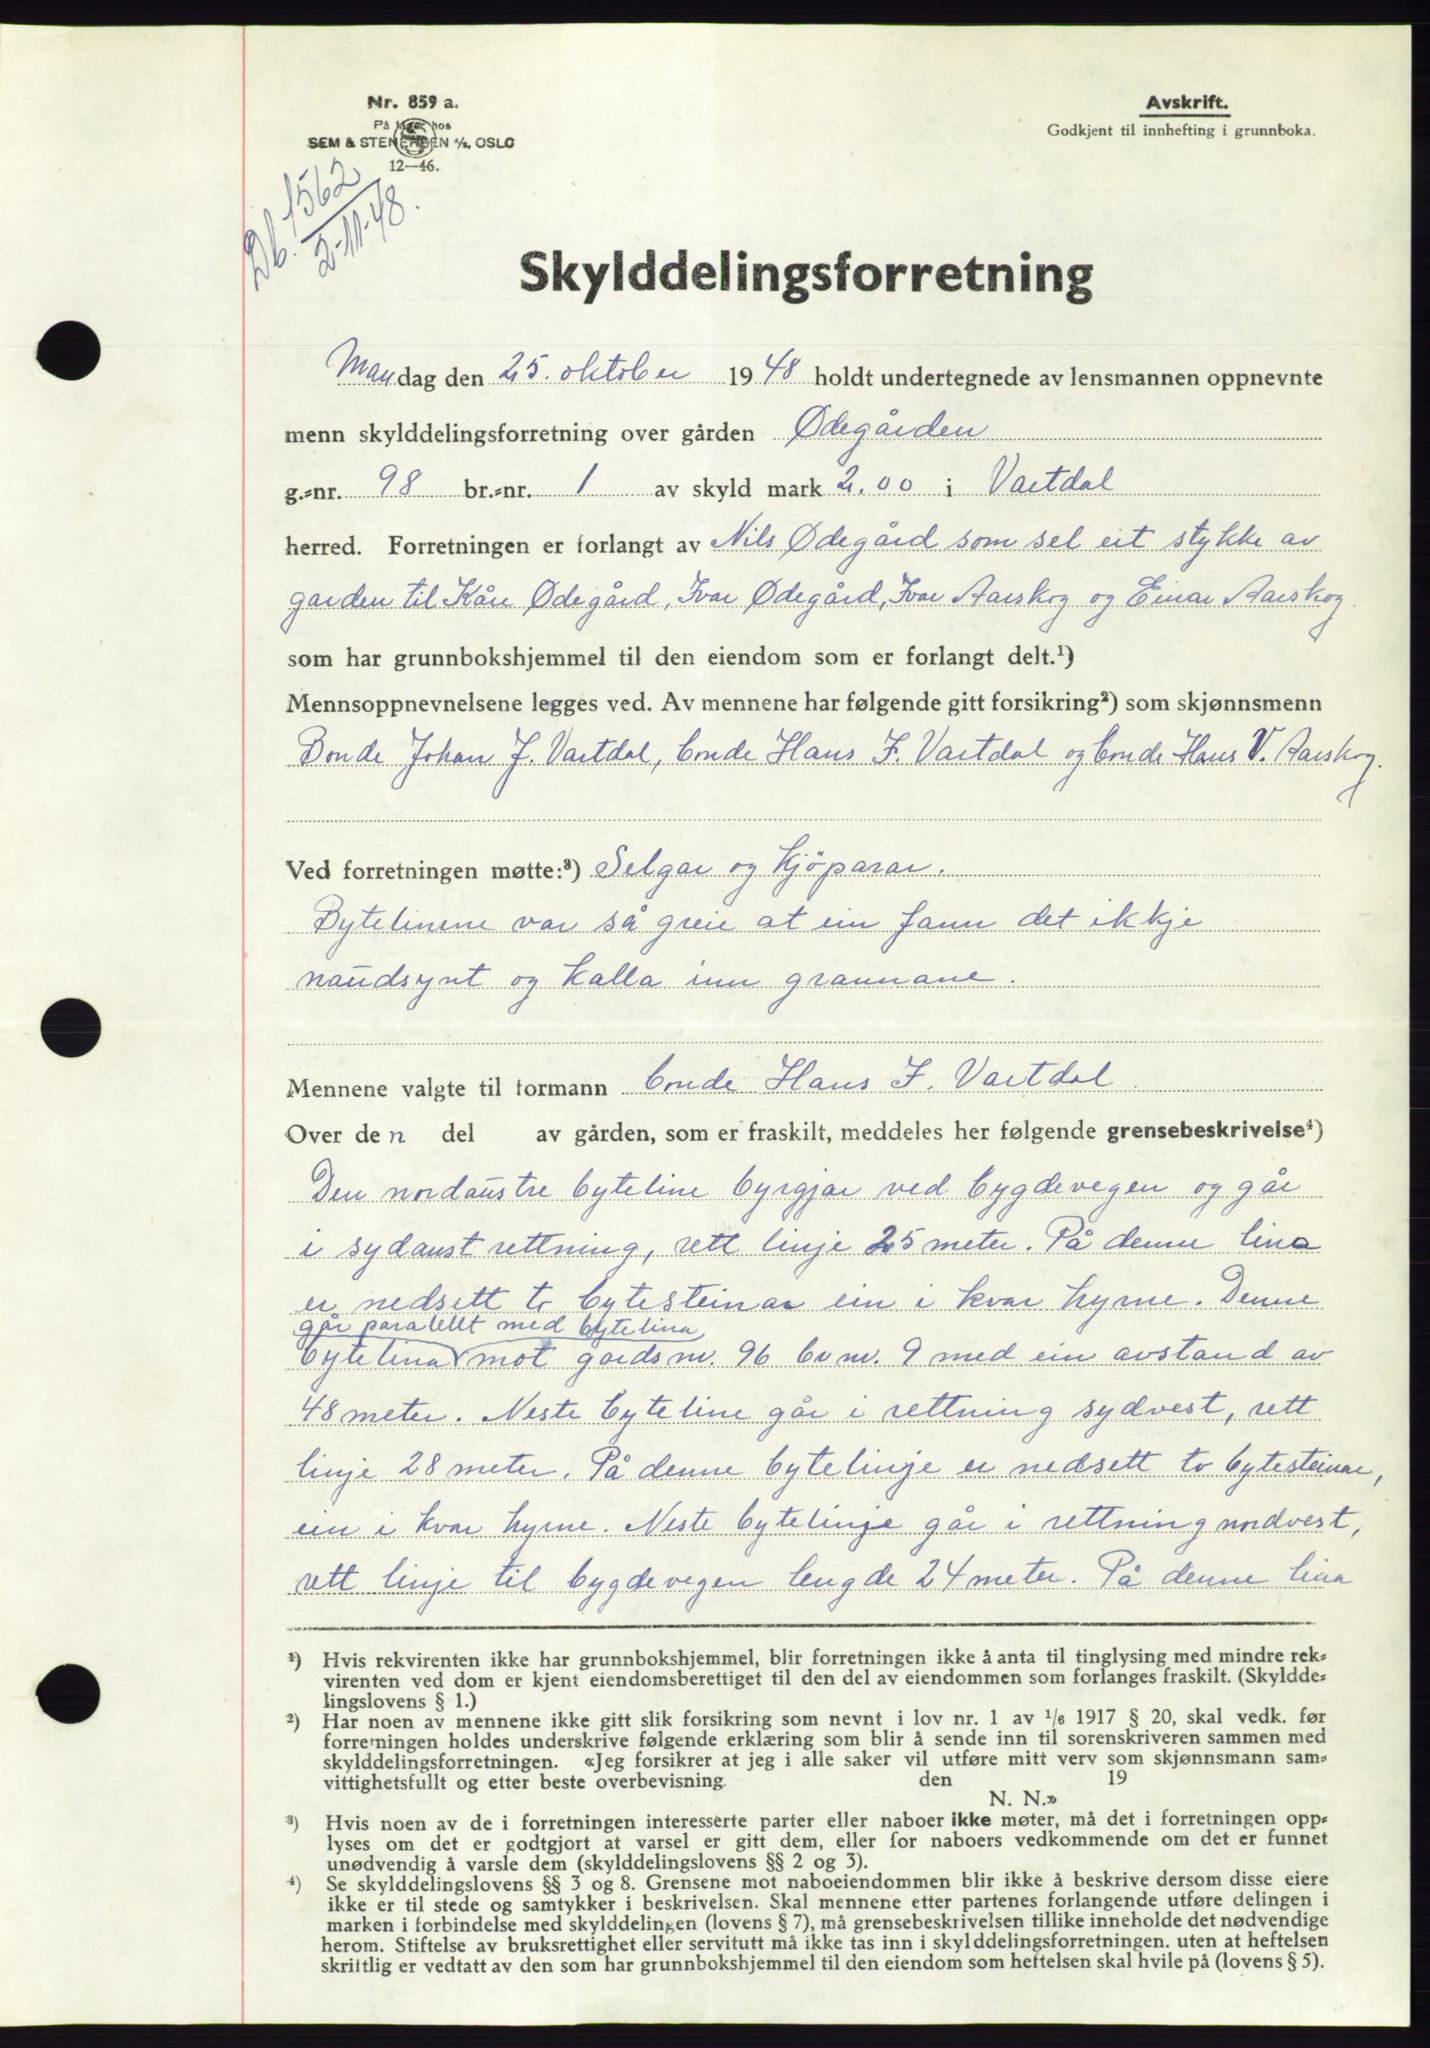 Nr. 859 a.
På lager hos
SEM & STENERSEN A/S, OSLO
12—46.
Avskrift.
Godkjent til innhefting i grunnboka.
Db. 1562
2-11-48.
Skylddelingsforretning
Mandag den 25. oktober 1948 holdt undertegnede av lensmannen oppnevnte
menn skylddelingsforretning over gården Ødegården
g.=nr. 98 br.=nr. 1 av skyld mark 2.00 i Vartdal
herred. Forretningen er forlangt av Nils Ødegård som sel eit stykke av
garden til Kåre Ødegård, Ivar Ødegård, Ivar Aarskog og Einar Aarskog.
som har grunnbokshjemmel til den eiendom som er forlangt delt.¹)
Mennsoppnevnelsene legges ved. Av mennene har følgende gitt forsikring²) som skjønnsmenn
Bonde Johan J. Vartdal, bonde Hans F. Vartdal og bonde Hans V. Aarskog.
Ved forretningen møtte:³) Selgar og kjöparar.
Bytelinene var så greie at ein fann det ikkje
naudsynt og kalla inn grannane.
Mennene valgte til formann bonde Hans F. Vartdal.
Over den del av gården, som er fraskilt, meddeles her følgende grensebeskrivelse⁴)
Den nordaustre byteline byrgjar ved bygdevegen og går
i sydaust rettning, rett linje 25 meter. På denne lina
er nedsett to bytesteinar ein i kvar hyrne. Denne
går paralellt med bytelina
bytelina mot gardsnr. 96 br nr. 9 med ein avstand av
48 meter. Neste byteline går i rettning sydvest, rett
linje 28 meter. På denne bytelinje er nedsett to bytesteinar,
ein i kvar hyrne. Neste bytelinje går i rettning nordvest,
rett linje til bygdevegen lengde 24 meter. På denne lina
¹) Hvis rekvirenten ikke har grunnbokshjemmel, blir forretningen ikke å anta til tinglysing med mindre rek=
virenten ved dom er kjent eiendomsberettiget til den del av eiendommen som forlanges fraskilt. (Skyldde=
lingslovens § 1.)
²) Har noen av mennene ikke gitt slik forsikring som nevnt i lov nr. 1 av 1/6 1917 § 20, skal vedk. før
forretningen holdes underskrive følgende erklæring som blir å sende inn til sorenskriveren sammen med
skylddelingsforretningen. «Jeg forsikrer at jeg i alle saker vil utføre mitt verv som skjønnsmann sam=
vittighetsfullt og etter beste overbevisning. den 19
N. N.»
³) Hvis noen av de i forretningen interesserte parter eller naboer ikke møter, må det i forretningen opp=
lyses om det er godtgjort at varsel er gitt dem, eller for naboers vedkommende om det er funnet
unødvendig å varsle dem (skylddelingslovens §§ 2 og 3).
⁴) Se skylddelingslovens §§ 3 og 8. Grensene mot naboeiendommen blir ikke å beskrive dersom disse eiere
ikke er til stede og samtykker i beskrivelsen. Skal mennene etter partenes forlangende utføre delingen i
marken i forbindelse med skylddelingen (lovens § 7), må grensebeskrivelsen tillike inneholde det nødvendige
herom. Stiftelse av bruksrettighet eller servitutt må ikke tas inn i skylddelingsforretningen. uten at heftelsen
skriftlig er vedtatt av den som har grunnbokshjemmel til den eiendom som heftelsen skal hvile på (lovens § 5).